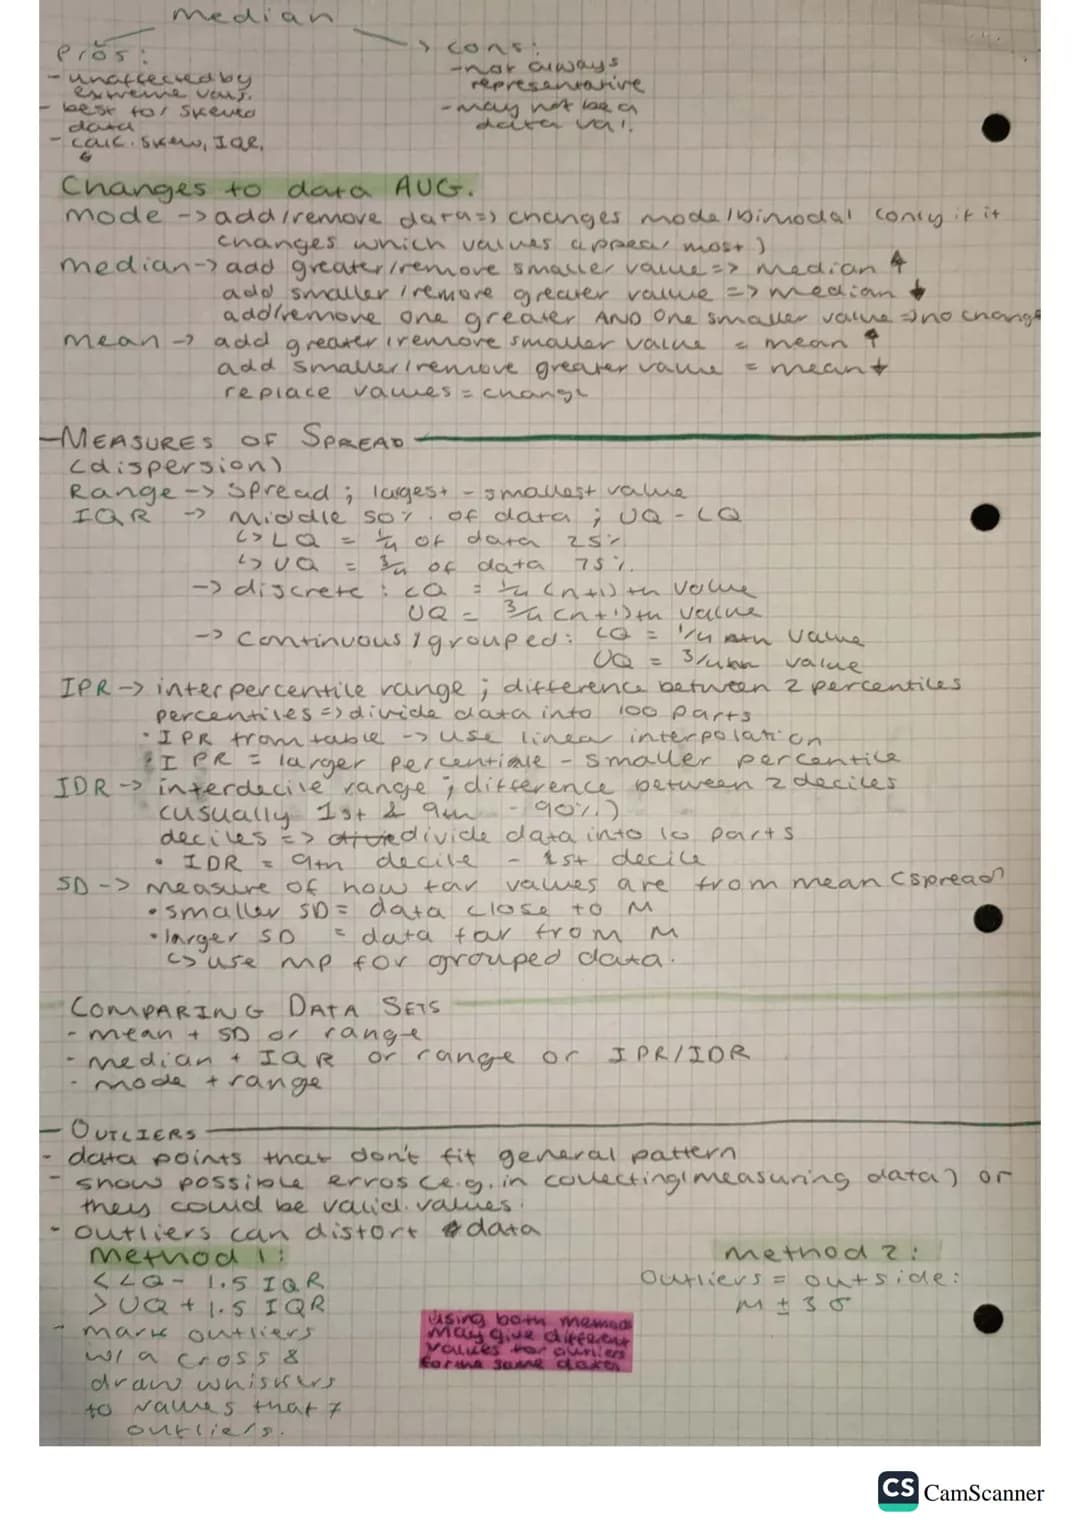 median
Pros:
- unaffected by
extreme vals.
- best for skewed
data
- calc. skew, IQR.
cons:
- not always
representative
- may not be a
data val.
Changes to data AUG.
mode -> add/remove data => changes mode/bimodal (only if it
changes which values appear most)
median -> add greater/remove smaller value => median ↑
add smaller/remove greater value => median ↓
add/remove one greater AND one smaller value => no change
mean -> add greater/remove smaller value = mean ↑
add smaller/remove greater value = mean ↓
replace values = change
MEASURES OF SPREAD
(dispersion)
Range -> spread ; largest - smallest value
IQR -> Middle 50% of data ; UQ - LQ
↳ LQ = 1/4 of data 25%
↳ UQ = 3/4 of data 75%
-> discrete : LQ = 1/4 (n+1)th value
UQ = 3/4 (n+1)th value
-> continuous/grouped: LQ = 1/4 nth value
UQ = 3/4 nth value
IPR -> interpercentile range ; difference between 2 percentiles
percentiles => divide data into 100 parts
• IPR from table -> use linear interpolation
• IPR = larger percentile - smaller percentile
IDR -> interdecile range ; difference between 2 deciles
(usually 1st & 9th - 90%)
deciles => divide data into 10 parts
• IDR = 9th decile - 1st decile
SD -> measure of how far values are from mean (spread)
• smaller SD = data close to M
• larger SD = data far from M
↳ use mp for grouped data.
COMPARING DATA SETS
- mean + SD or range
- median + IQR or range or IPR/IDR
- mode + range
OUTLIERS
- data points that don't fit general pattern
- show possible erros (e.g. in collecting/measuring data) or
they could be valid values.
- outliers can distort data
Method 1:
< LQ - 1.5 IQR
> UQ + 1.5 IQR
- mark outliers
w/ a cross &
draw whiskers
to values that ≠
outliers.
Method 2:
Outliers = outside:
M ± 3σ
using both methods
may give different
values for outliers
for the same data
CS CamScanner